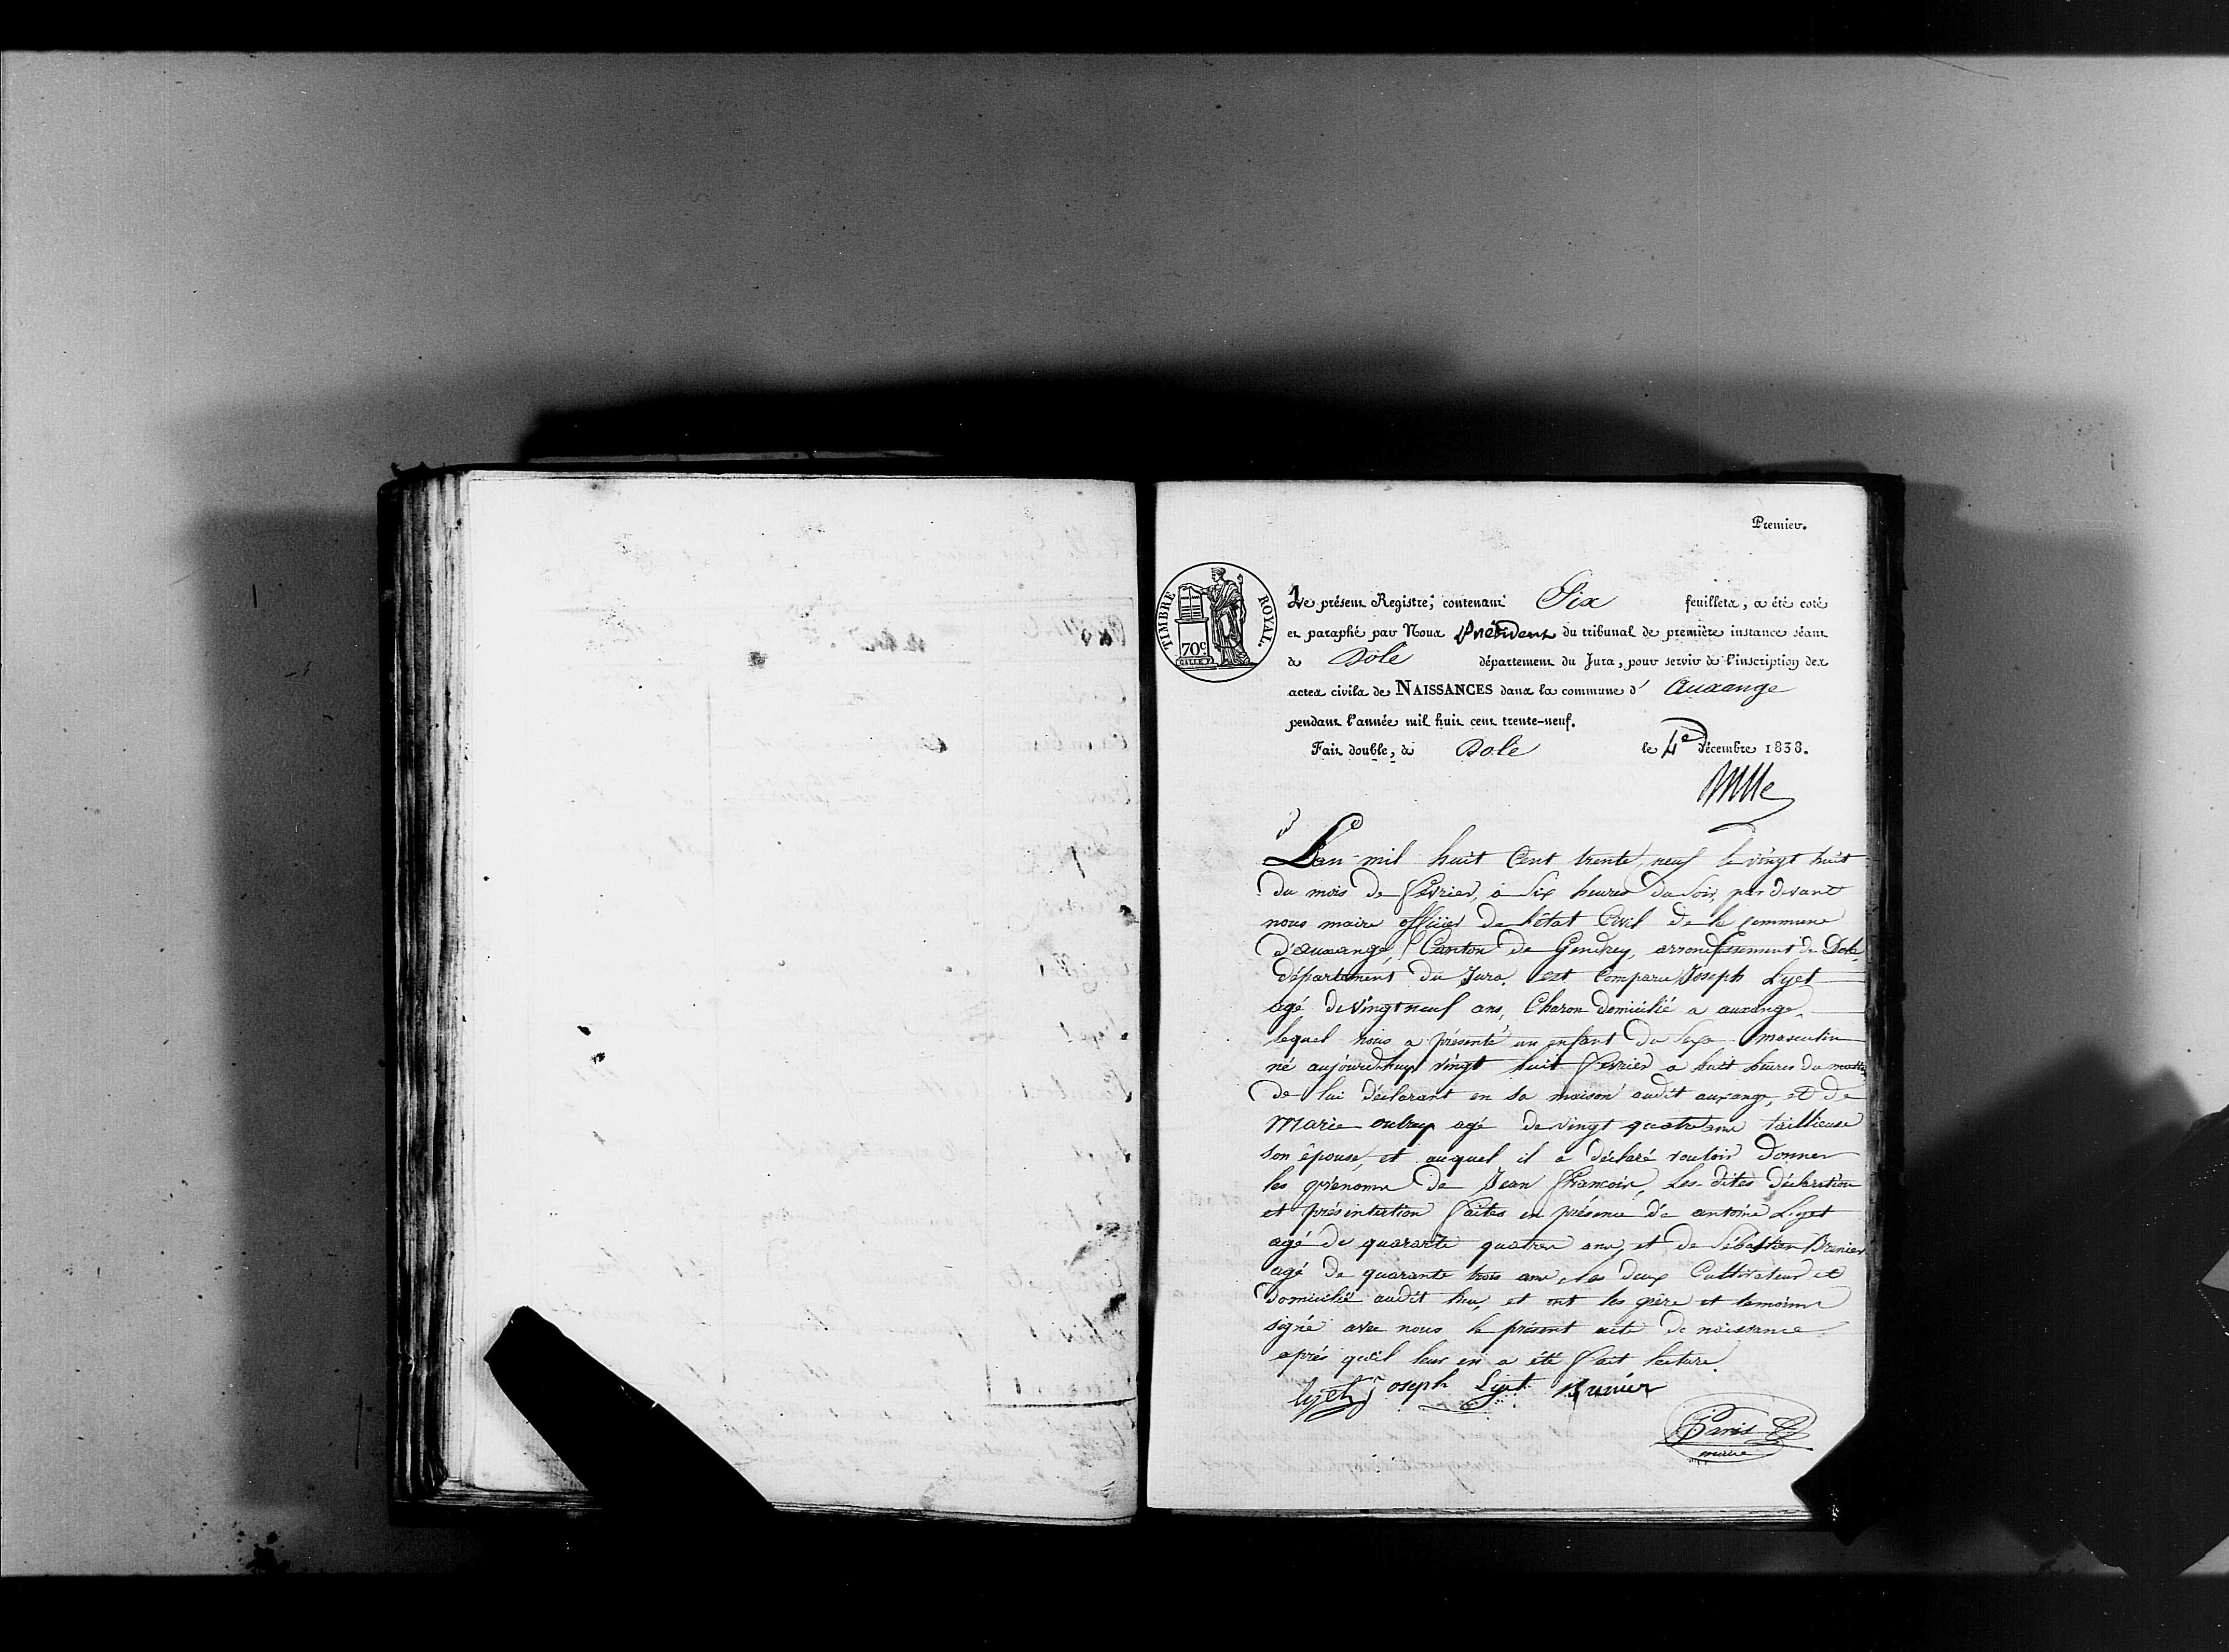 Premier.
TIMBRE ROYAL.
70c
Le présent Registre, contenant Six feuillets, a été coté
et paraphé par Nous Président du tribunal de première instance séant
à Dole département du Jura, pour servir à l'inscription des
actes civils de NAISSANCES dans la commune d' Auxange
pendant l'année mil huit cent trente-neuf.
Fait double, à Dole le 4e Décembre 1838.
L'an mil huit Cent trente neuf le vingt huit
du mois de fevrier, a Six heures du Soir, par devant
nous maire officier de l'état Civil de la commune
d'auxange, Canton de Gendrey, arrondissement de Dole
département du Jura, est Comparu Joseph Lyet
agé de vingt neuf ans, Charon domicilié a auxange,
lequel nous a présenté un enfant du Sexe masculin
né aujourdhuy vingt huit fevrier a huit heures du matin
de lui déclarant en sa maison audit auxange, et de
Marie oubry agé de vingt quatre ans taillieuse
son épouse, et auquel il a déclaré vouloir donner
les prénoms de Jean François, Les dites déclaration
et présentation faites en présence de antoine Lyet
agé de quarante quatre ans, et de Sébastien Brenier
agé de quarante trois ans, les deux Cultivateur et
domicilié audit lieu, et ont les père et temoins
signé avec nous le présent acte de naissance
après qu'il leur en a été fait lecture.
lyet joseph Lyet Brenier
Paris
maire